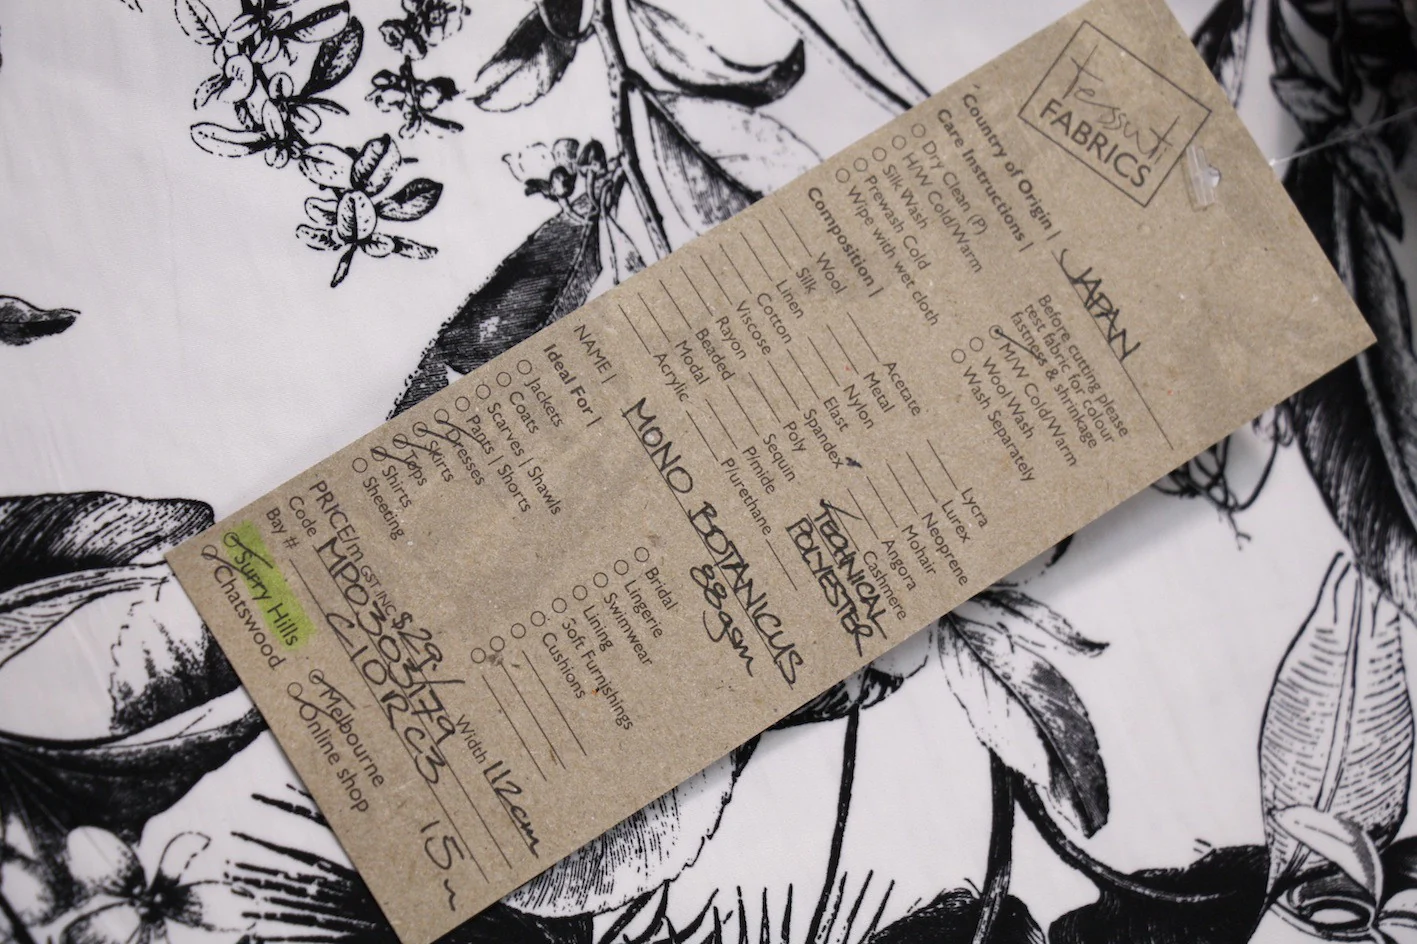 Tessuti
FABRICS
Country of Origin | JAPAN
Care Instructions |
Dry Clean (P)
H/W Cold/Warm
Silk Wash
Prewash Cold
Wipe with wet cloth
Before cutting please
test fabric for colour
fastness & shrinkage
M/W Cold/Warm
Wool Wash
Wash Separately
Composition |
Wool
Silk
Linen
Cotton
Viscose
Rayon
Beaded
Modal
Acrylic
Acetate
Metal
Nylon
Elast
Spandex
Poly
Sequin
P/mide
P/urethane
Lycra
Lurex
Neoprene
Mohair
Angora
Cashmere
TECHNICAL
POLYESTER
NAME | MONO BOTANICUS
88gsm
Ideal For |
Jackets
Coats
Scarves | Shawls
Pants | Shorts
Dresses
Skirts
Tops
Shirts
Sheeting
Bridal
Lingerie
Swimwear
Lining
Soft Furnishings
Cushions
PRICE/m GST INC $29./ Width 112cm
Code MP0303179
Bay # C10RC3 15m
Surry Hills
Chatswood
Melbourne
Online shop